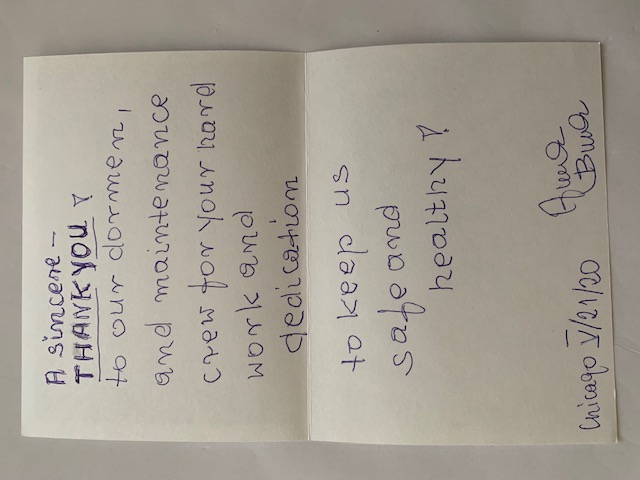 A sincere –
THANK YOU !
to our dormen,
and maintenance
crew for your hard
work and
dedication
to keep us
safe and
healthy !
Chicago V/21/20